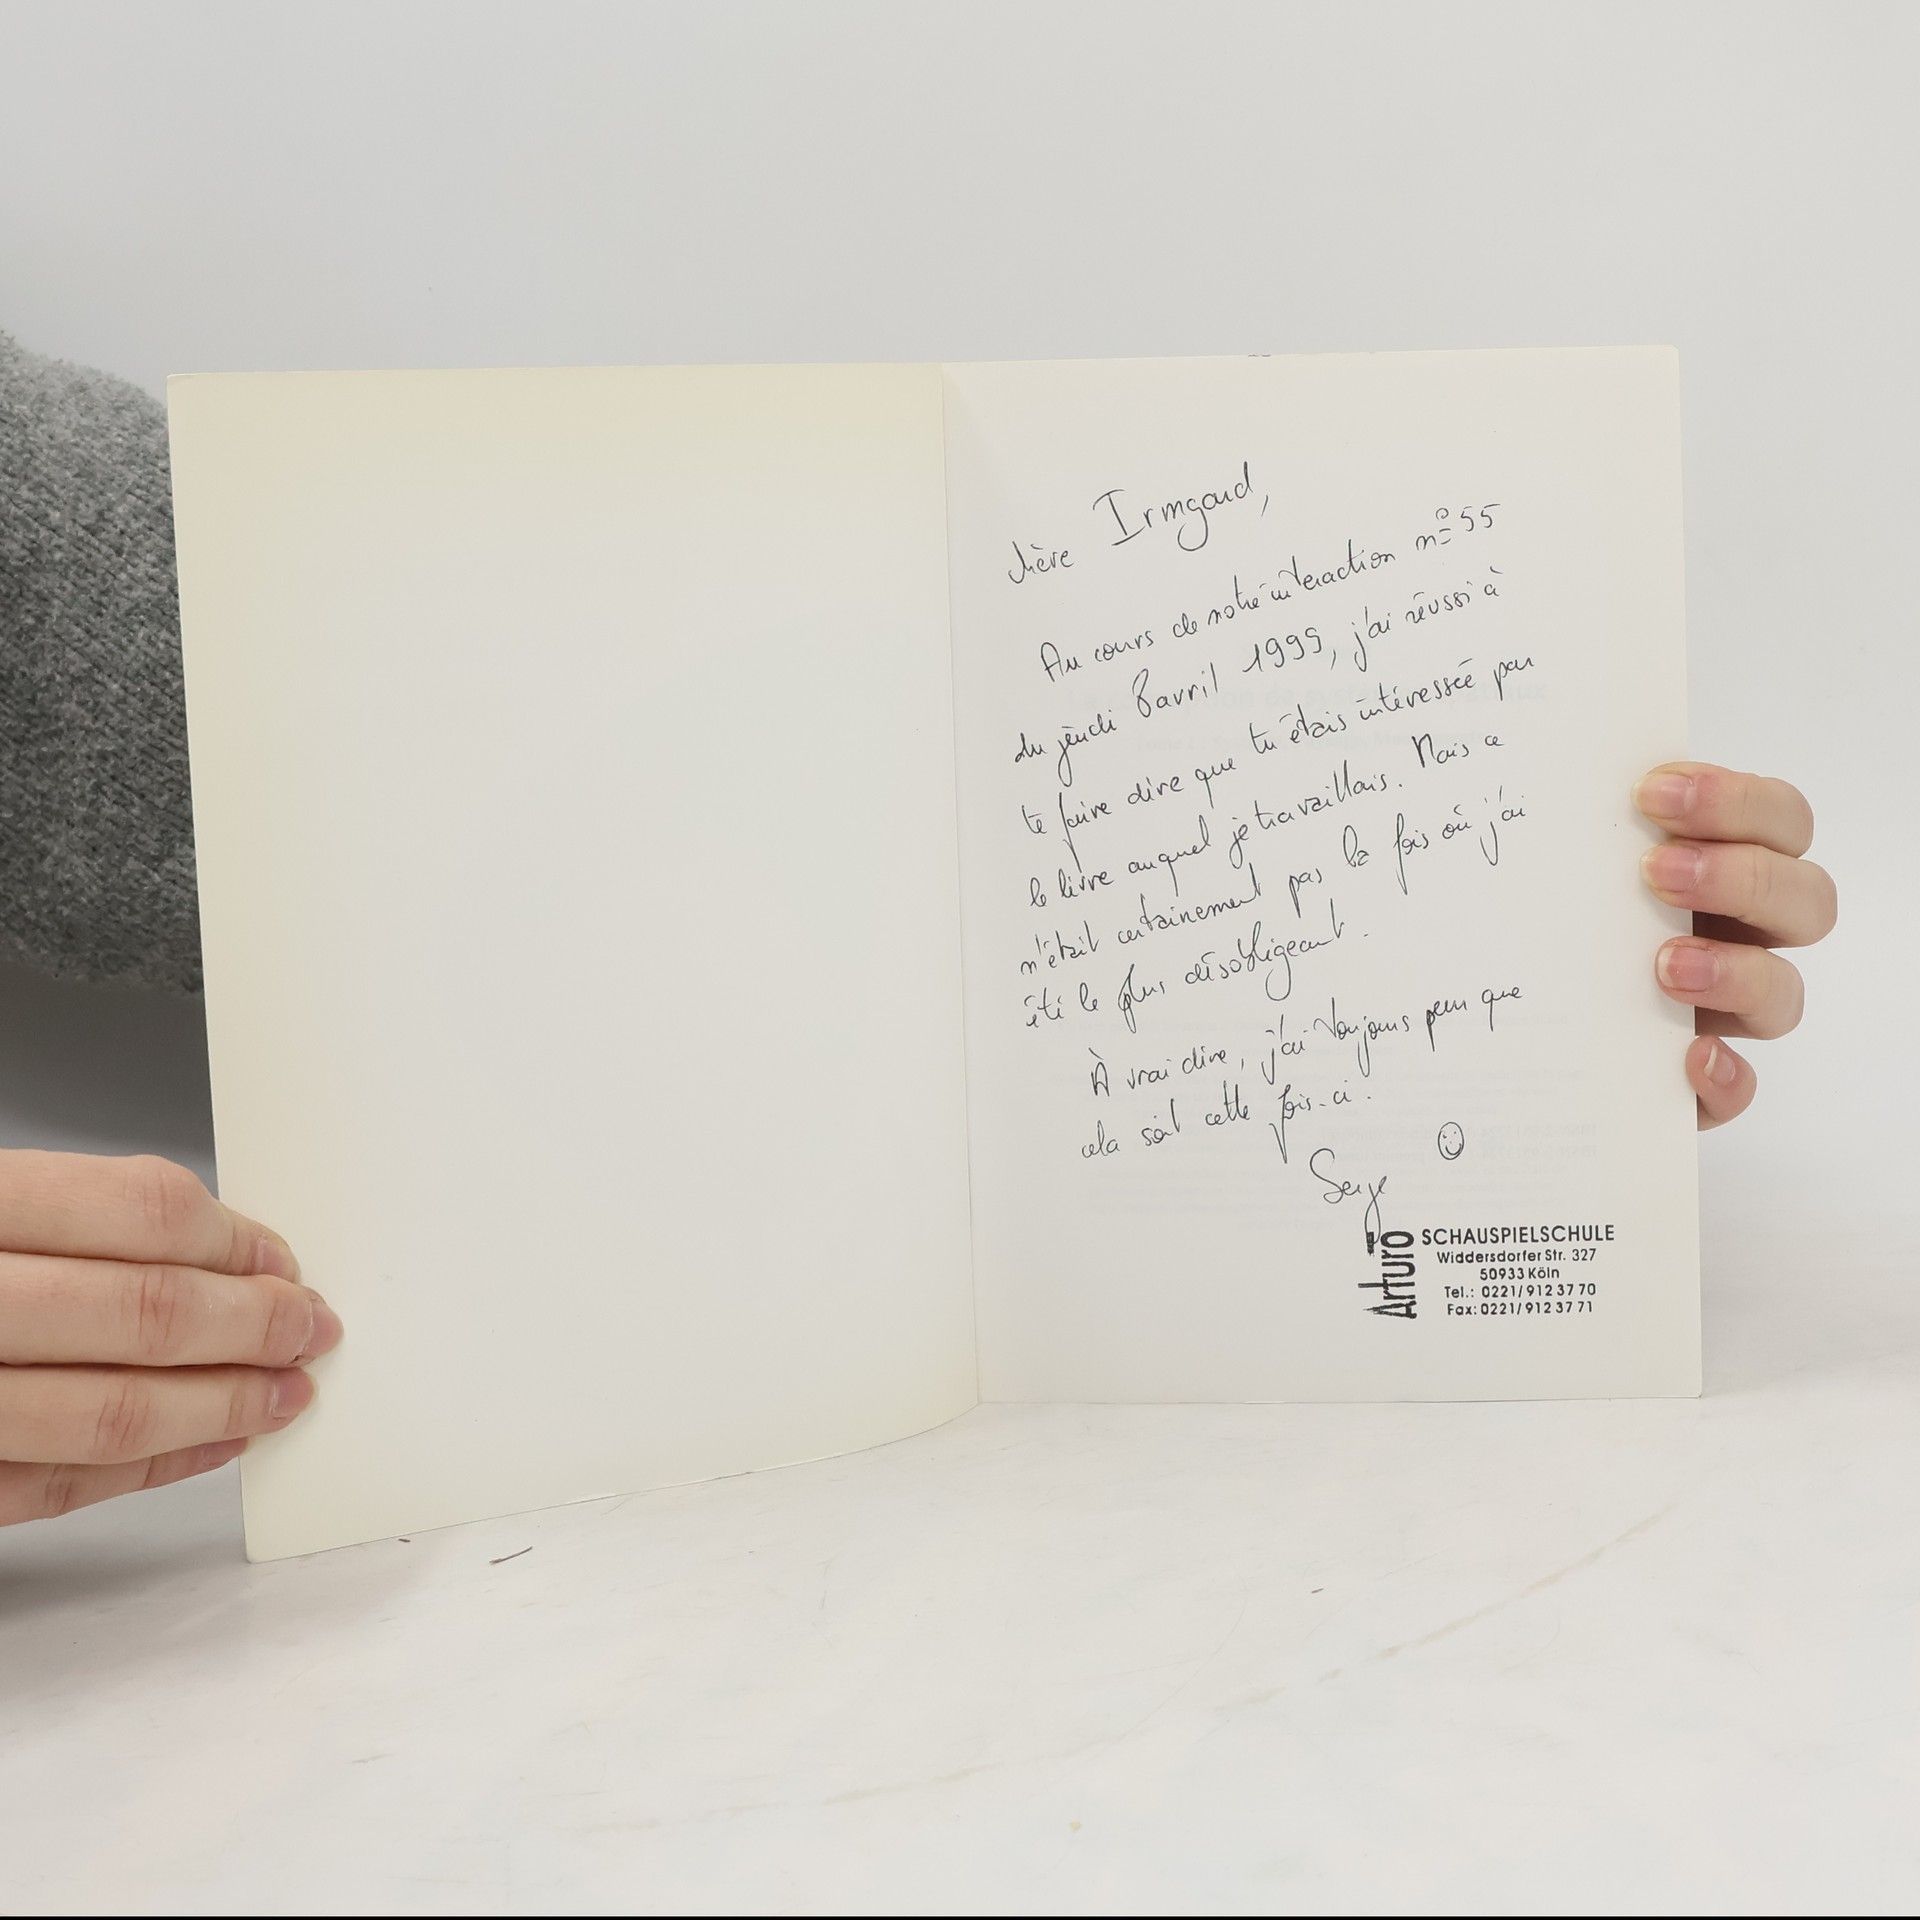 chère Irmgard,
Au cours de notre interaction nº 55
du jeudi 8 avril 1999, j'ai réussi à
te faire dire que tu étais intéressée par
le livre auquel je travaillais. Mais ce
n'était certainement pas la fois où j'ai
été le plus désobligeant.
À vrai dire, j'ai toujours peur que
cela soit cette fois-ci.
Serge
Arturo
SCHAUSPIELSCHULE
Widdersdorfer Str. 327
50933 Köln
Tel.: 0221/912 37 70
Fax: 0221/912 37 71